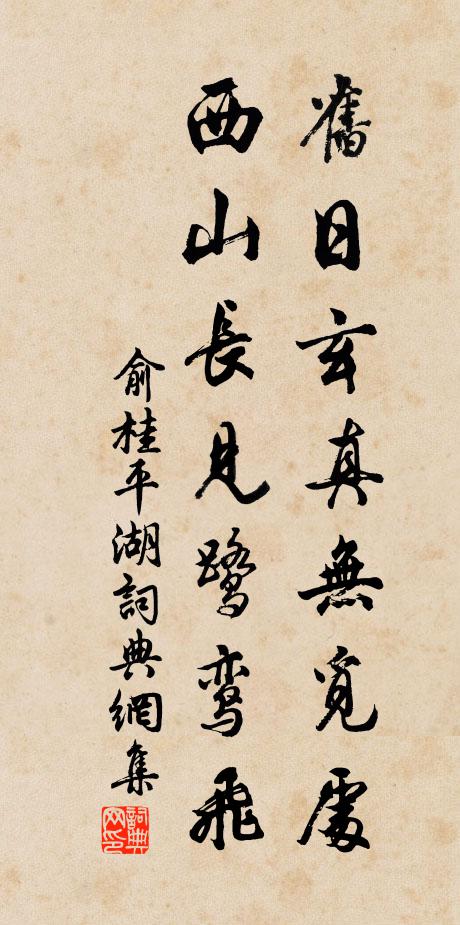 舊日玄真無覓處
西山長見鷺鸾飛
俞桂平湖詞典網集
詞典网印